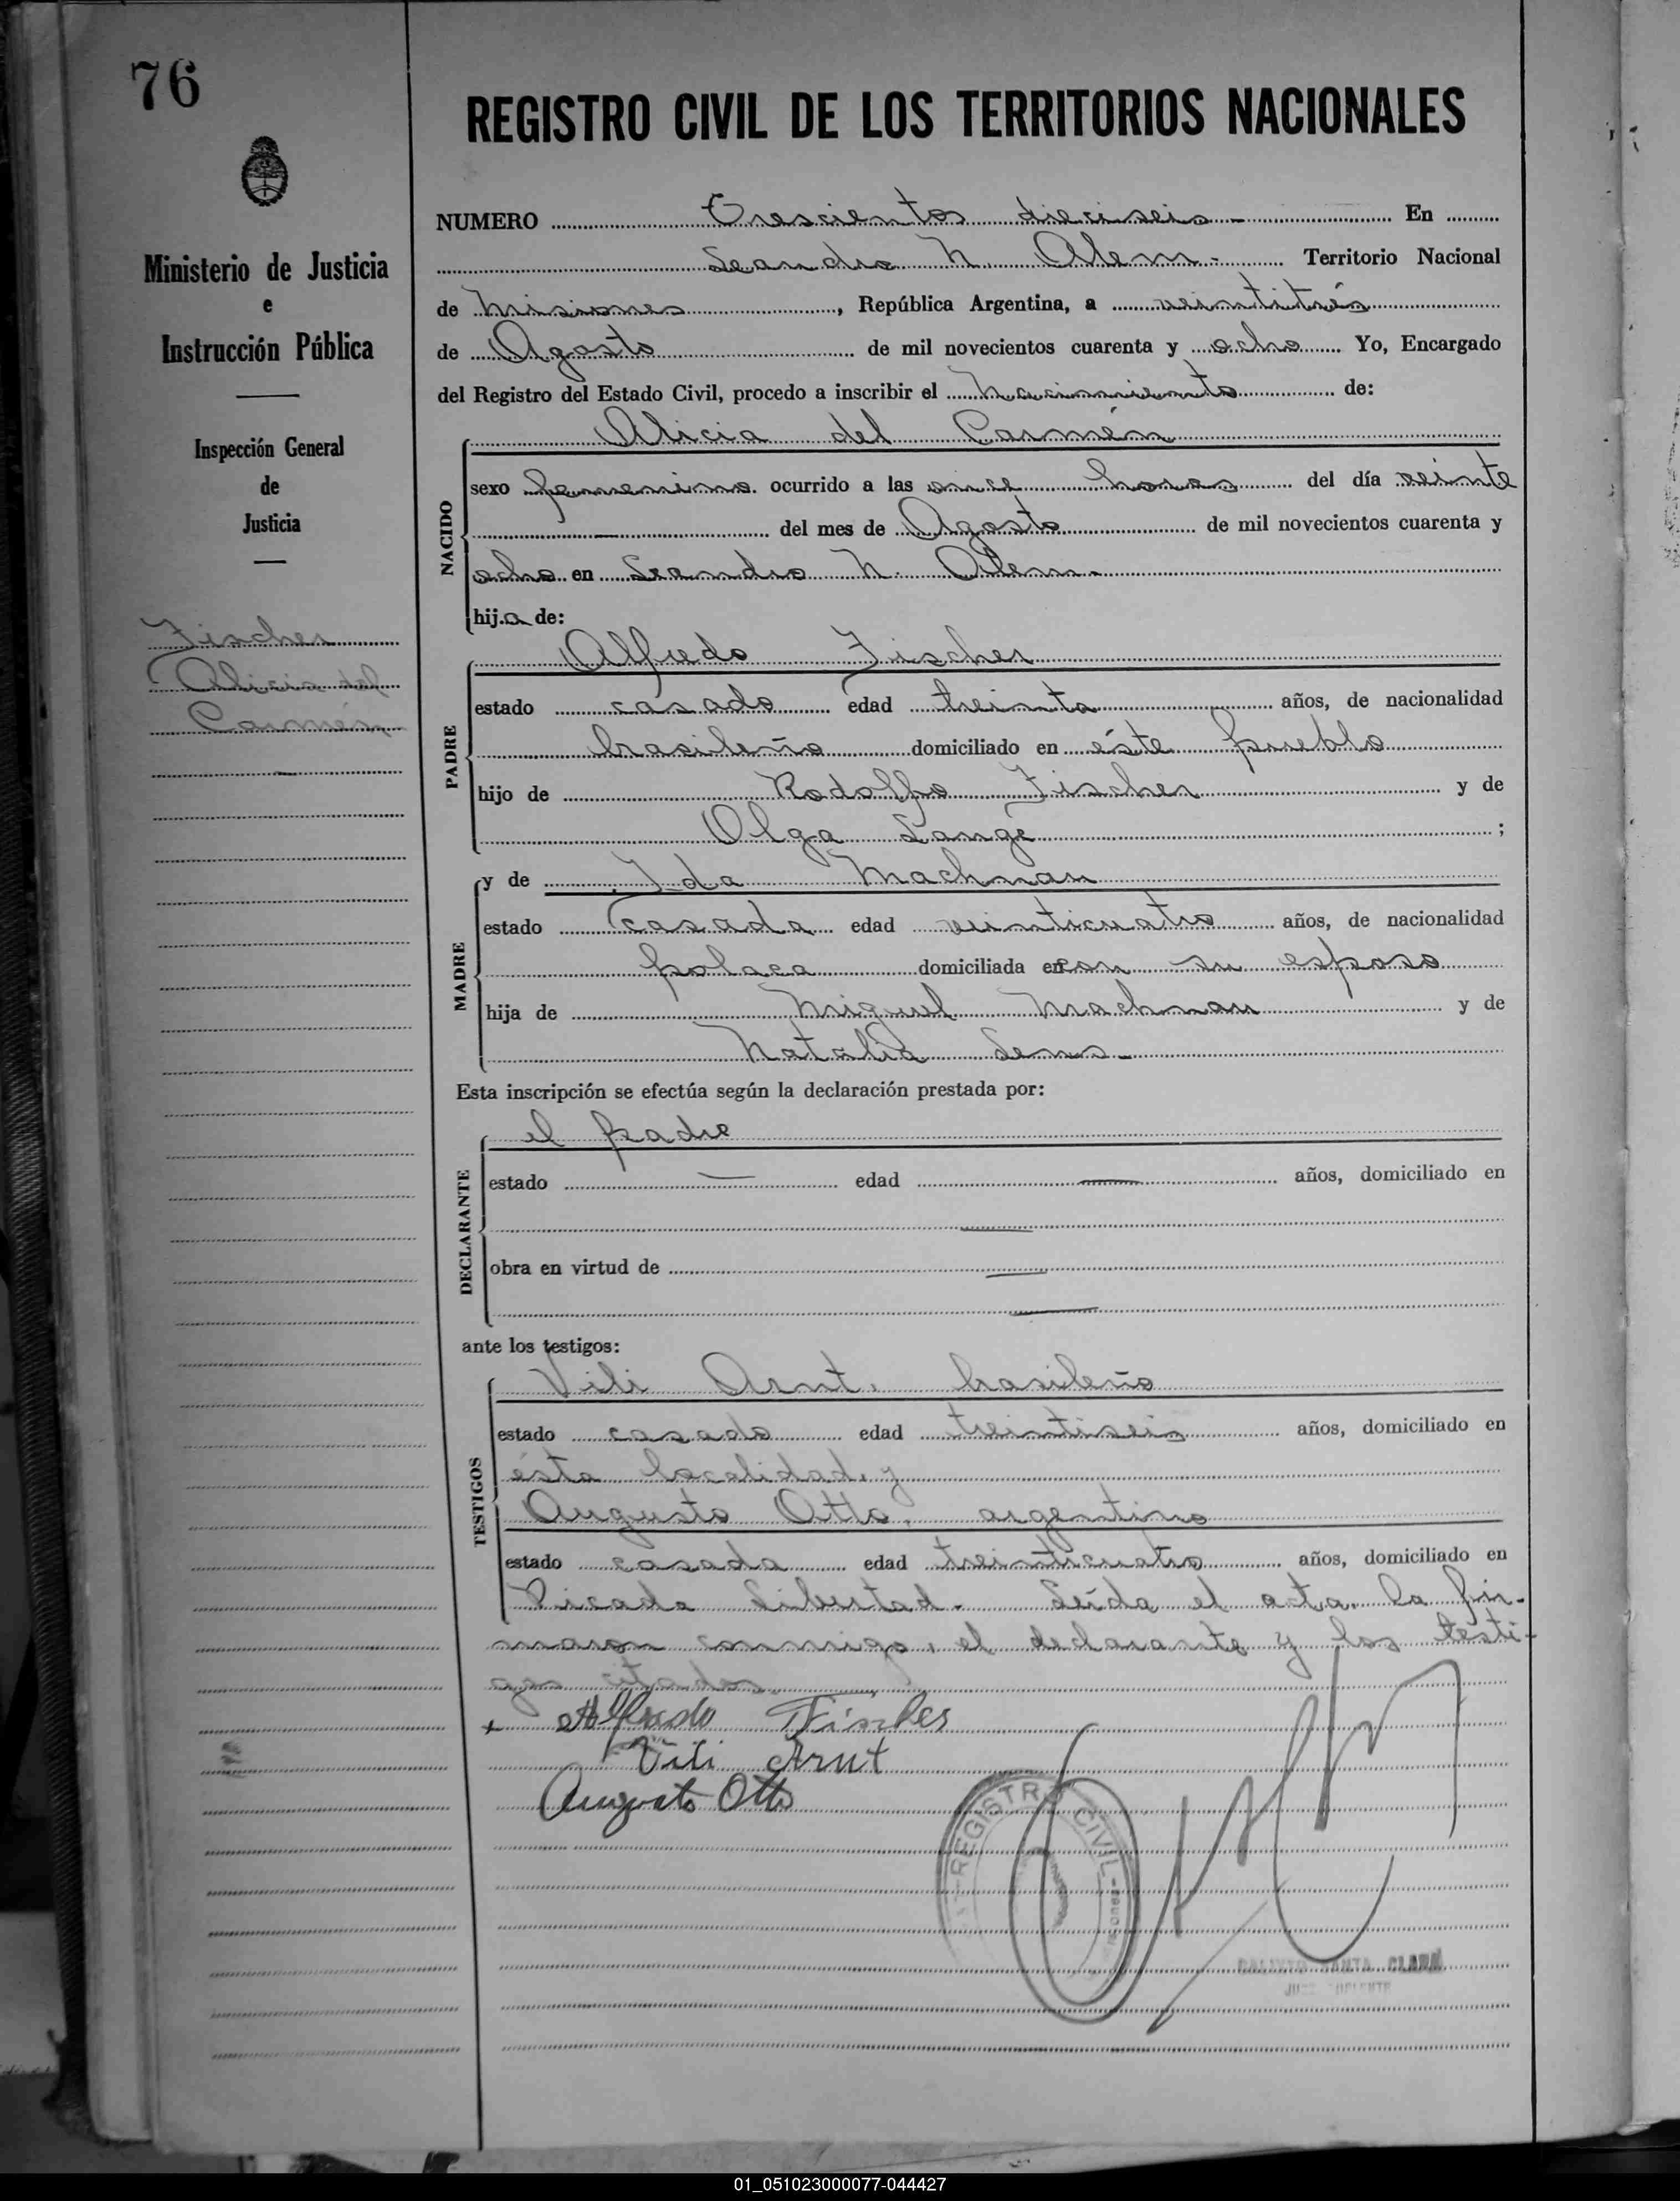 76
REGISTRO CIVIL DE LOS TERRITORIOS NACIONALES
Ministerio de Justicia
e
Instrucción Pública
Inspección General
de
Justicia
Fischer
Alicia del
Carmén
NUMERO Trescientos dieciseis - En
Leandro N. Alem.- Territorio Nacional
de Misiones, República Argentina, a veintitrés
de Agosto de mil novecientos cuarenta y ocho Yo, Encargado
del Registro del Estado Civil, procedo a inscribir el nacimiento de:
Alicia del Carmén
NACIDO
sexo femenino ocurrido a las once horas del día veinte
— del mes de Agosto de mil novecientos cuarenta y
ocho en Leandro N. Alem.-
hija de:
Alfredo Fischer
PADRE
estado casado edad treinta años, de nacionalidad
brasileño domiciliado en éste pueblo
hijo de Rodolfo Fischer y de
Olga Langé ;
y de Ida Machnau
MADRE
estado casada edad veinticuatro años, de nacionalidad
polaca domiciliada en con su esposo
hija de Miguel Machnau y de
Natalia Sens.-
Esta inscripción se efectúa según la declaración prestada por:
el padre
DECLARANTE
estado — edad — años, domiciliado en
—
obra en virtud de —
—
ante los testigos:
Vili Arnt, brasileño
TESTIGOS
estado casado edad treintiseis años, domiciliado en
ésta localidad, y
Augusto Otto, argentino
estado casado edad treinticuatro años, domiciliado en
Picada Libertad.- Leída el acta, la fir-
maron conmigo, el declarante y los testi-
gos citados.-
x Alfredo Fischer
Vili Arnt
Augusto Otto
REGISTRO CIVIL
CALIXTO SANTA CLARA
JUEZ SUPLENTE
01_051023000077-044427